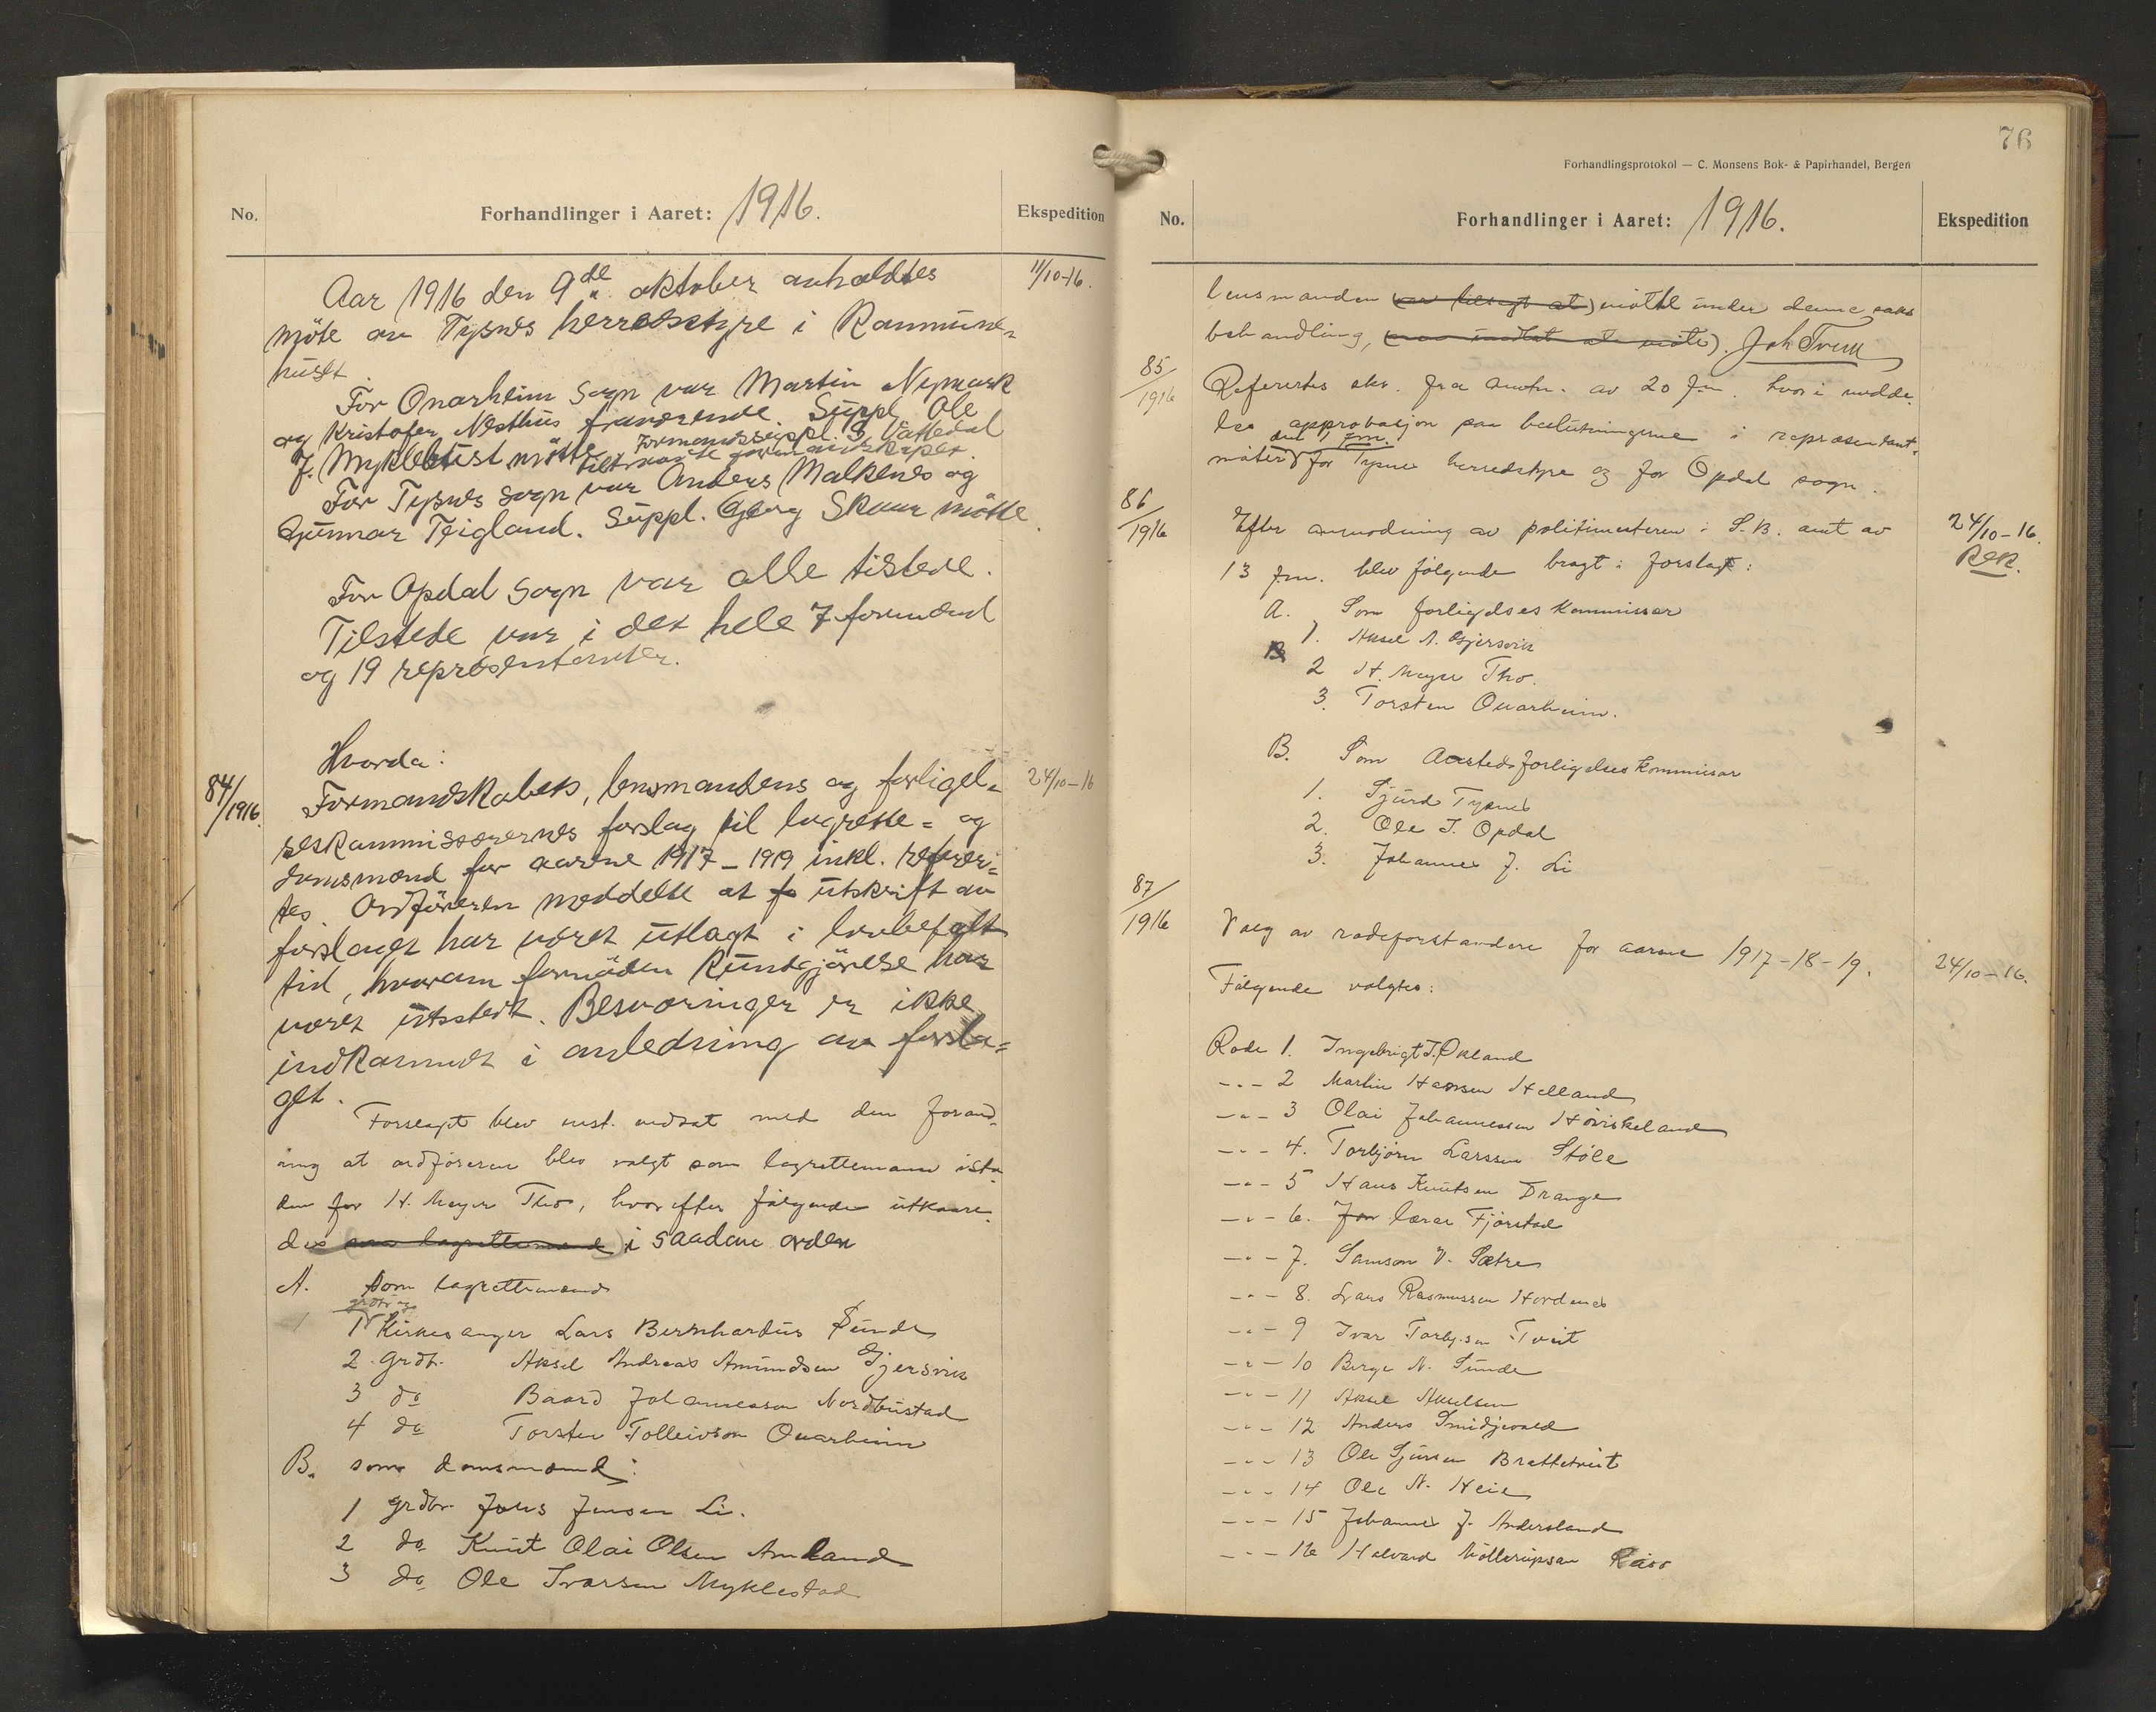 No.
Forhandlinger i Aaret: 1916.
Ekspedition
Aar 1916 den 9de oktober avholdtes
11/10-16.
möte av Tysnes herredsstyre i Kommune-
huset.
For Onarheim sogn var Martin Nymark
og Kristofer Nesthus fraværende. Suppl. Ole
J. Myklebust mötte. Formandssuppl. S. Vattedal
tiltraadte formandskapet.
For Tysnes sogn var Anders Malkenes og
Gunnar Teigland. Suppl. Georg Skaar mötte.
For Opdal sogn var alle tilstede.
Tilstede var i det hele 7 formænd
og 19 repræsentanter.
Hvorda:
84/1916.
Formandskabets, lensmandens og forligel-
24/10-16
seskommissærernes forslag til lagrette- og
domsmænd for aarene 1917-1919 inkl. referer-
tes. Ordføreren meddelte at fo utskrift av
forslaget har været utlagt i lovbefalt
tid, hvorom fornöden kundgjörelse har
været utstedt. Besværinger er ikke
indkommet i anledning av forsla-
get.
Forslaget blev enst. vedtat med den forand-
ring at ordføreren blev valgt som lagrettemann iste-
den for H. Meyer Tho, hvorefter følgende utkaare-
des som lagrettemænd i saadan orden
A. Som lagrettemænd
grdbr. og
1 Kirkesanger Lars Bernhardus Sunde
2. Grdbr. Aksel Andreas Amundsen Gjersvik
3 do Baard Johannessen Nordbustad
4 do Torsten Tolleivson Onarheim
B. som domsmænd:
1 grdbr. Jens Jensen Li.
2 do Knut Olai Olsen Amland
3 do Ole Ivarsen Myklestad
76
Forhandlingsprotokol — C. Monsens Bok- & Papirhandel, Bergen
No.
Forhandlinger i Aaret: 1916.
Ekspedition
lensmanden (var tilsagt at) møtte under denne saks
behandling, (var indbudt at møte). Joh Tveit
85/1916
Refererter skr. fra amtm. av 20 f.m. hvori medde-
les approbasjon paa beslutningerne i repræsentant-
den 1 f.m.
møter for Tysnes herredstyre og for Opdal sogn.
86/1916
Efter anmodning av politimesteren i S.B. amt av
24/10-16.
13 f.m. blev følgende bragt i forslag:
Rek.
A. Som forligelseskommissær
1. Aksel A. Gjersvik
B
2 H. Meyer Tho.
3. Torsten Onarheim.
B. Som Aastedsforligelseskommissær
1. Sjurd Tysnes
2. Ole J. Opdal
3. Johannes J. Li
87/1916
Valg av rodeforstandere for aarene 1917-18-19.
24/10-16.
Følgende valgtes:
Rode 1. Ingebrigt J. Økland
-"- 2 Martin Hansen Helland
-"- 3 Olai Johannessen Høviskeland
-"- 4. Torbjørn Larssen Støle
-"- 5 Hans Knutsen Drange
-"- 6. Jon lærer Fjørstad
-"- 7. Samson V. Sætre
-"- 8. Lars Rasmussen Hordenes
-"- 9 Ivar Torbj.sen Tveit
-"- 10 Berge N. Sunde
-"- 11 Aksel Akselsen
-"- 12 Anders Smidjevold
-"- 13 Ole Sjursen Brattetveit
-"- 14 Ole N. Heie
-"- 15 Johannes J. Andersland
-"- 16 Halvard Mollerupsen